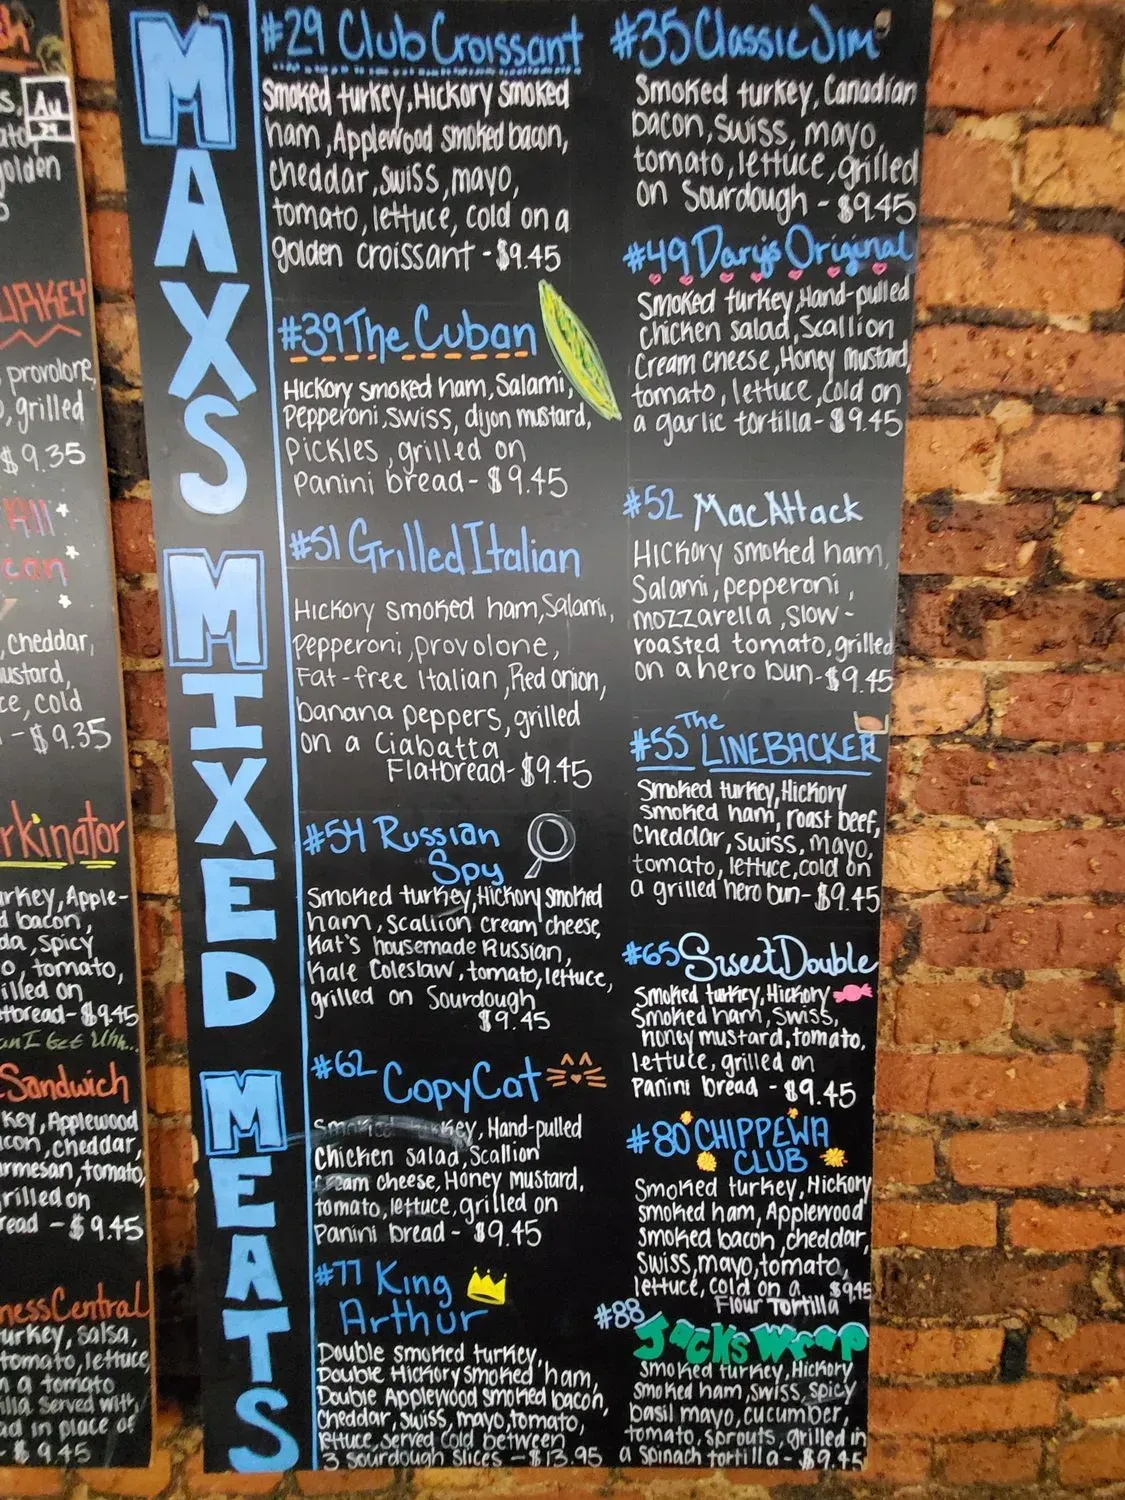 sh
s,
Au
29
ato,
golden
5
URKEY
provolone,
, grilled
$9.35
All
can
, cheddar,
ustard,
ce, cold
- $9.35
rkinator
urkey, Apple-
d bacon,
da, spicy
o, tomato,
illed on
tbread - $9.45
an I Get Uhh...
Sandwich
key, Applewood
con, cheddar,
rmesan, tomato,
rilled on
read - $9.45
nessCentral
urkey, salsa,
tomato, lettuce
n a tomato
illa served with
ad in place of
- $9.45
MAXS MIXED MEATS
#29 Club Croissant
Smoked turkey, Hickory smoked
ham, Applewood smoked bacon,
cheddar, swiss, mayo,
tomato, lettuce, cold on a
golden croissant - $9.45
#39 The Cuban
Hickory smoked ham, Salami,
Pepperoni, swiss, dijon mustard,
Pickles, grilled on
Panini bread - $9.45
#51 Grilled Italian
Hickory smoked ham, Salami,
Pepperoni, provolone,
Fat-free Italian, Red onion,
banana peppers, grilled
on a Ciabatta
Flatbread - $9.45
#54 Russian
Spy
Smoked turkey, Hickory smoked
ham, scallion cream cheese,
Kat's housemade Russian,
Kale Coleslaw, tomato, lettuce,
grilled on Sourdough
$9.45
#62 CopyCat
Smoked turkey, Hand-pulled
Chicken salad, Scallion
cream cheese, Honey mustard,
tomato, lettuce, grilled on
Panini bread - $9.45
#77 King
Arthur
Double smoked turkey,
Double Hickory smoked ham,
Double Applewood smoked bacon,
Cheddar, swiss, mayo, tomato,
lettuce, served cold between
3 sourdough slices - $13.95
#35 Classic Jim
Smoked turkey, Canadian
bacon, swiss, mayo,
tomato, lettuce, grilled
on Sourdough - $9.45
#49 Darys Original
Smoked turkey, Hand-pulled
chicken salad, Scallion
Cream cheese, Honey mustard,
tomato, lettuce, cold on
a garlic tortilla - $9.45
#52 Mac Attack
Hickory smoked ham,
Salami, pepperoni,
mozzarella, slow-
roasted tomato, grilled
on a hero bun - $9.45
#55 The LINEBACKER
Smoked turkey, Hickory
smoked ham, roast beef,
cheddar, swiss, mayo,
tomato, lettuce, cold on
a grilled hero bun - $9.45
#65 Sweet Double
Smoked turkey, Hickory
Smoked ham, Swiss,
honey mustard, tomato,
lettuce, grilled on
Panini bread - $9.45
#80 CHIPPEWA
CLUB
Smoked turkey, Hickory
smoked ham, Applewood
Smoked bacon, cheddar,
Swiss, mayo, tomato,
lettuce, cold on a $9.45
Flour Tortilla
#88 Jacks Wrap
Smoked turkey, Hickory
smoked ham, swiss, spicy
basil mayo, cucumber,
tomato, sprouts, grilled in
a spinach tortilla - $9.45